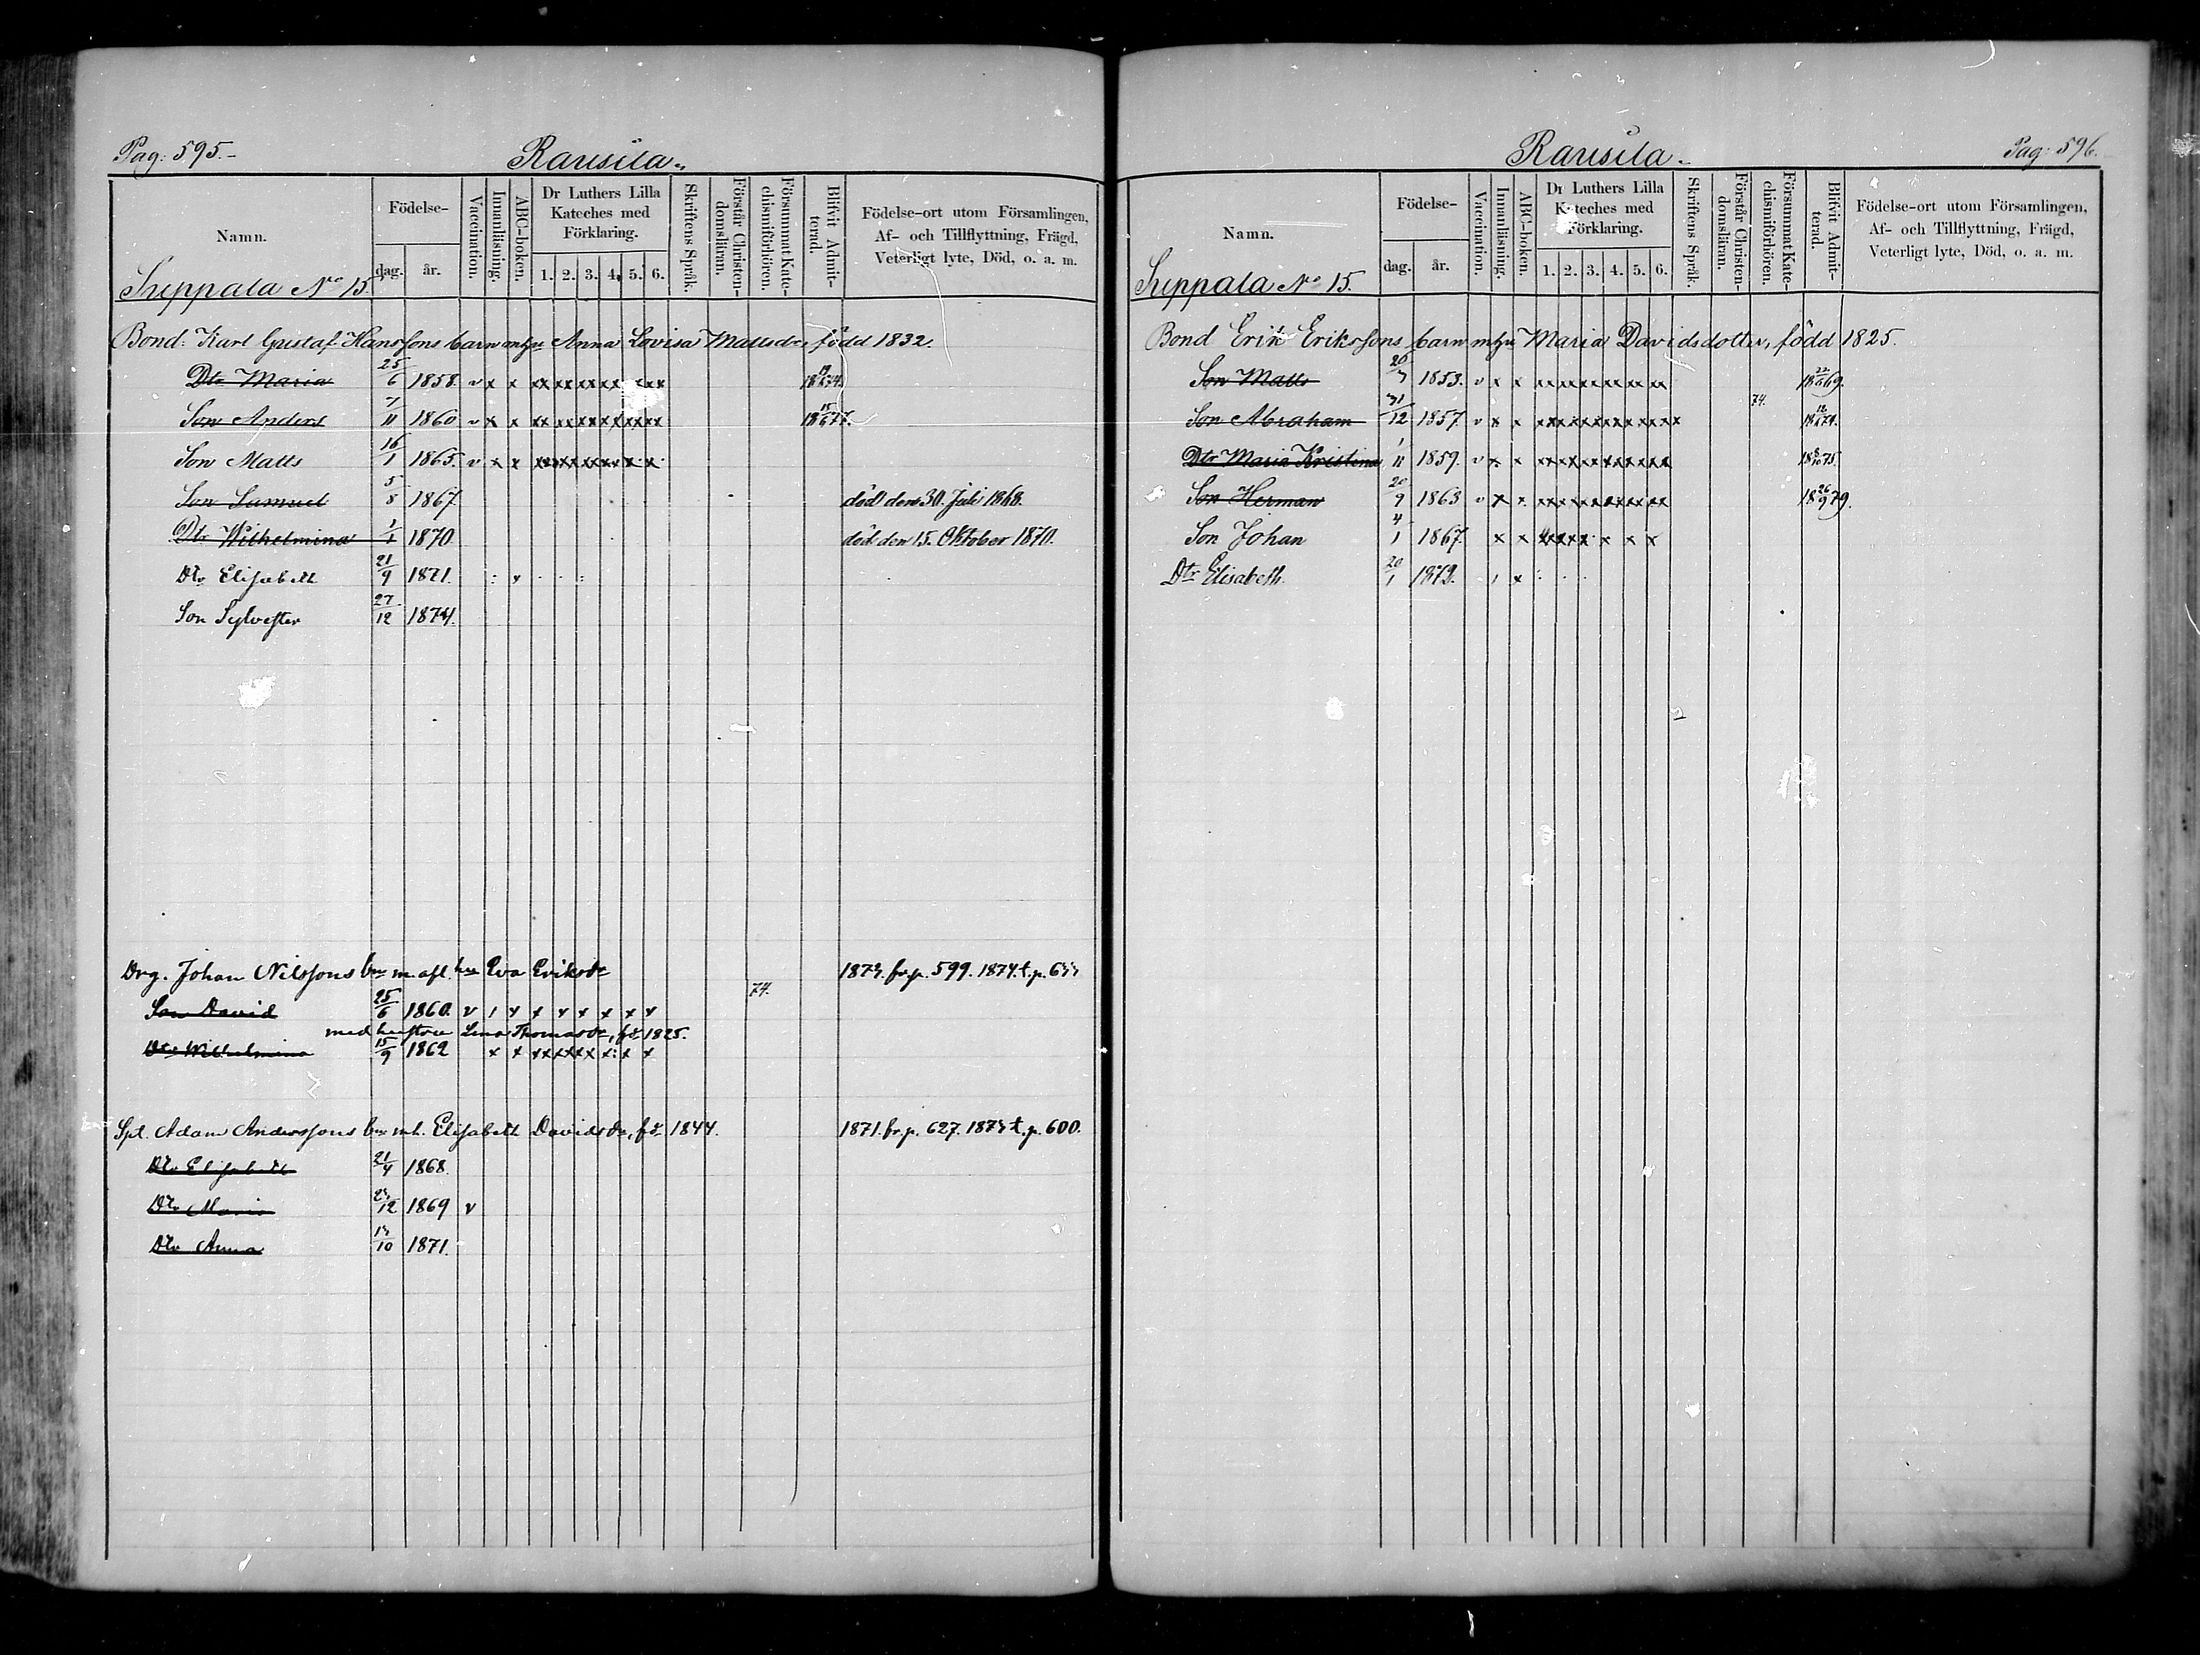 Pag: 595.
Rausila.
Namn.
Födelse-
dag.
år.
Vaccination.
Innanläsning.
ABC-boken.
Dr Luthers Lilla Kateches med Förklaring.
1. 2. 3. 4. 5. 6.
Skriftens Språk.
Förstår Christen-domsläran.
Försummat Kate-chismiförhören.
Blifvit Admit-terad.
Födelse-ort utom Församlingen, Af- och Tillflyttning, Frägd, Veterligt lyte, Död, o. a. m.
Suppala No 15.
Bond: Karl Gustaf Hanssons barn m hu Anna Lovisa Mattsdr, född 1832.
Dtr Maria 25/6 1858. v x x
Son Anders 7/11 1860 v x x
Son Matts 16/1 1865. v x x
Son Samuel 5/8 1867. död den 30. Juli 1868.
Dtr Wilhelmina 1/1 1870 död den 15. Oktober 1870.
Dtr Elisabeth 21/9 1871.
Son Sylvester 27/12 1874.
Drg. Johan Nilssons bn m. afl. hu Eva Eriksdr 1873. fr. p. 599. 1874. t. p.
74.
Son David 25/6 1860. v
med hustru Lena Thomasdr, fd 1825.
Dtr Wilhelmina 15/9 1862
Spl. Adam Anderssons bn m h. Elisabeth Davidsdr, fd 1844. 1871. fr. p. 627. 1873 t. p. 600.
Dtr Elisabeth 21/4 1868.
Dtr Maria 1869 v
Dtr Anna 1871.
Pag: 596.
Rausila.
Namn.
Födelse-
dag.
år.
Vaccination.
Innanläsning.
ABC-boken.
Dr Luthers Lilla Kateches med Förklaring.
1. 2. 3. 4. 5. 6.
Skriftens Språk.
Förstår Christen-domsläran.
Försummat Kate-chismiförhören.
Blifvit Admit-terad.
Födelse-ort utom Församlingen, Af- och Tillflyttning, Frägd, Veterligt lyte, Död, o. a. m.
Suppala No 15.
Bond Erik Erikssons barn m hu Maria Davidsdotter, född 1825.
Son Matts 1853. v x x 18 22/6 69.
74.
Son Abraham 31/12 1857. v x x
Dtr Maria Kristina 1/11 1859. v x x 18 8/10 75.
Son Herman 20/9 1863 v x x 18 26/9 79.
Son Johan 4/1 1867 x x
Dtr Elisabeth 20/1 1872.